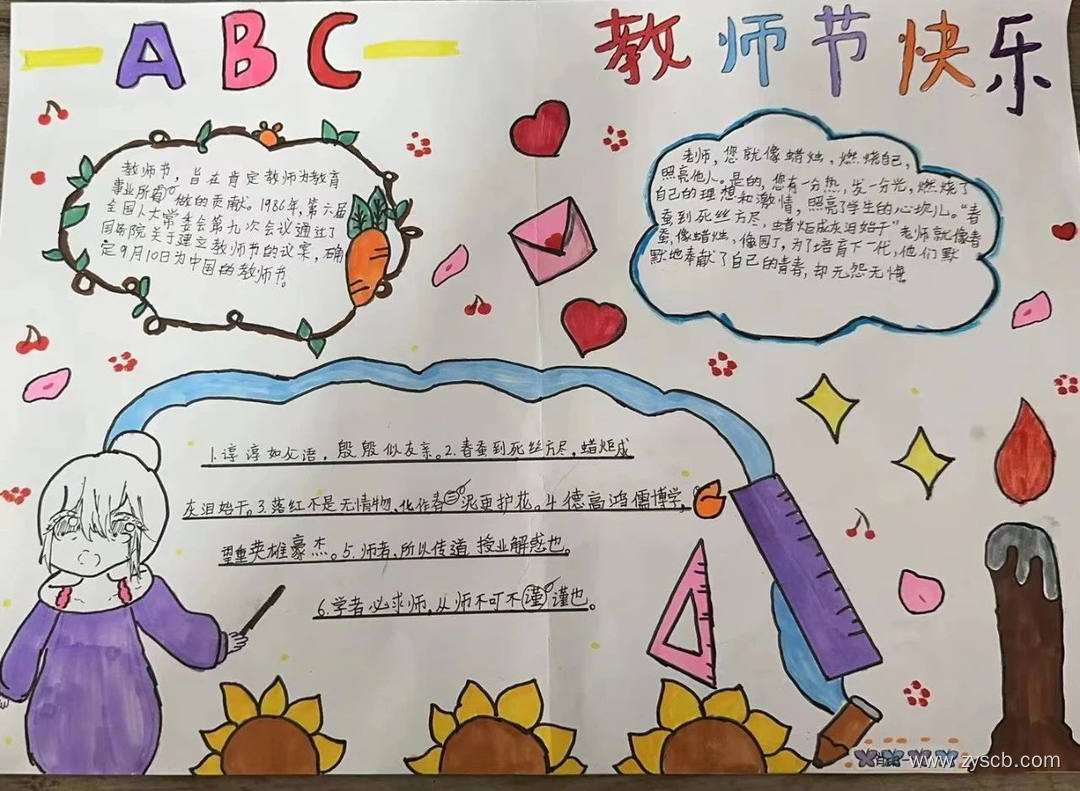 ABC
教师节快乐
教师节,旨在肯定教师为教育
事业所做的贡献。1986年,第六届
全国人大常委会第九次会议通过了
国务院关于建立教师节的议案,确
定9月10日为中国的教师节。
老师,您就像蜡烛,燃烧自己,
照亮他人。是的,您有一分热,发一分光,燃烧了
自己的理想和激情,照亮了学生的心坎儿。“春
蚕到死丝方尽,蜡炬成灰泪始干”老师就像春
蚕,像蜡烛,像园丁,为了培育下一代,他们默
默地奉献了自己的青春,却无怨无悔。
1.谆谆如父语,殷殷似友亲。2.春蚕到死丝方尽,蜡炬成
灰泪始干。3.落红不是无情物,化作春泥更护花。4.德高鸿儒博学,
望重英雄豪杰。5.师者,所以传道授业解惑也。
6.学者必求师,从师不可不谨也。
www.zyscb.com